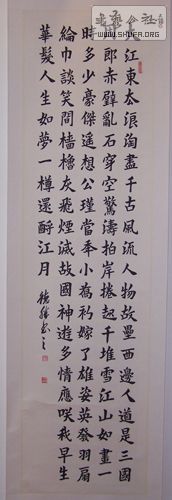 江東去浪淘盡千古風流人物故壘西邊人道是三國
郎赤壁亂石穿空驚濤拍岸捲起千堆雪江山如畫一
時多少豪傑遙想公瑾當年小喬初嫁了雄姿英發羽扇
綸巾談笑間檣櫓灰飛煙滅故國神遊多情應笑我早生
華髮人生如夢一樽還酹江月